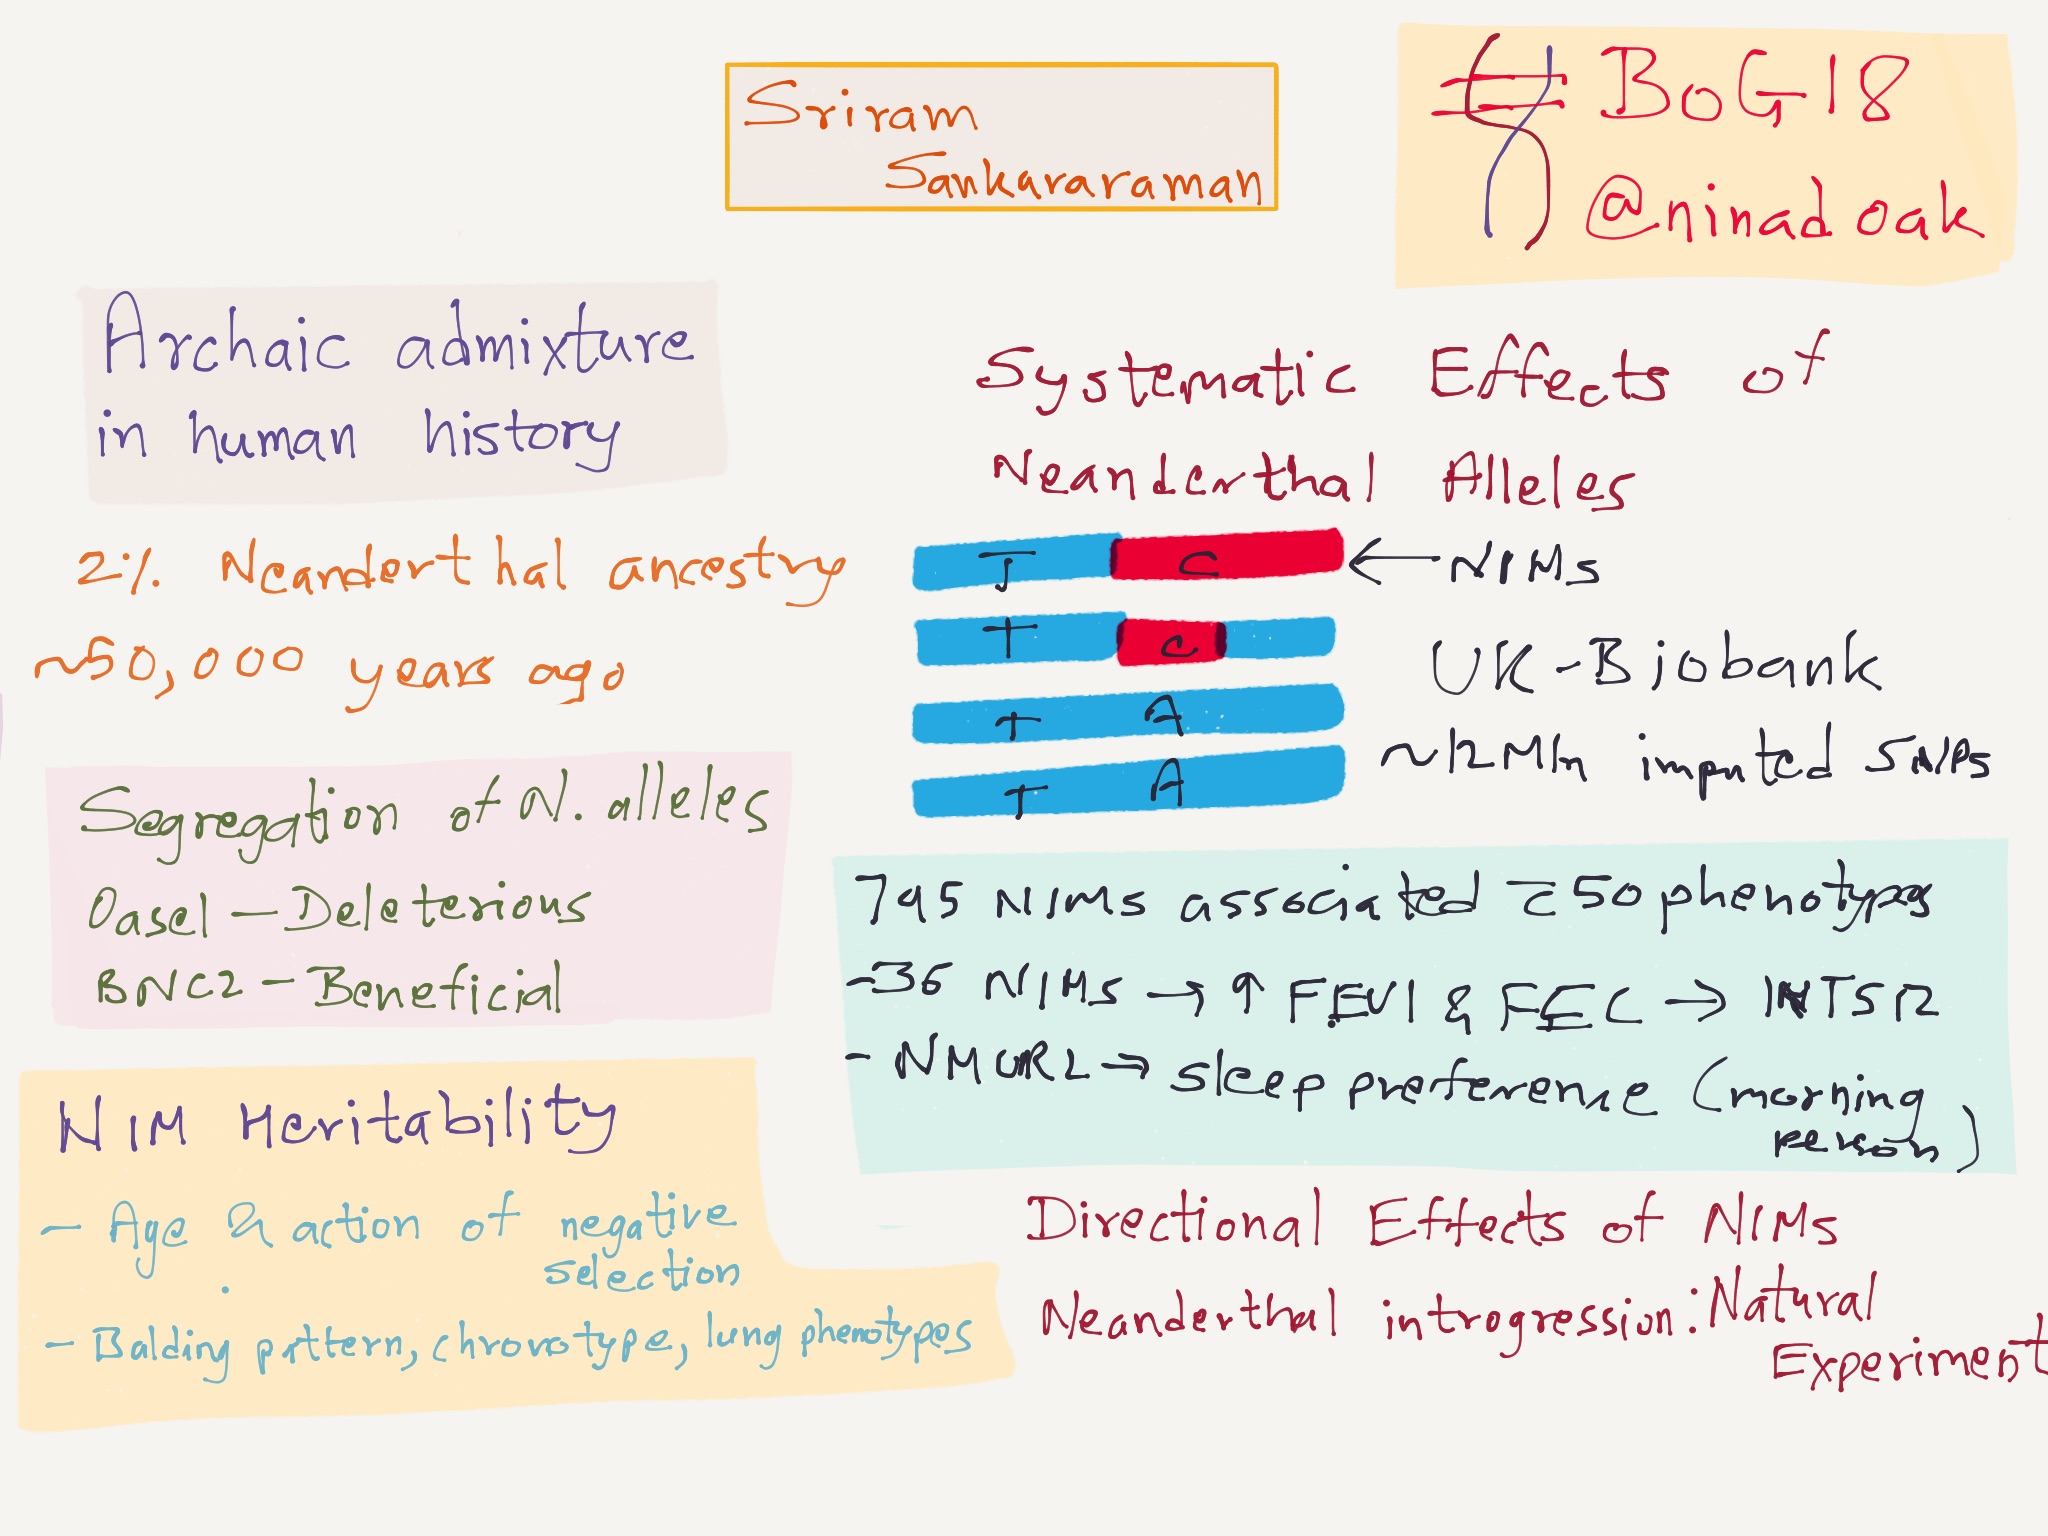 Sriram
Sankararaman
# BoG18
@ninadoak
Archaic admixture
in human history
2% Neanderthal ancestry
~50,000 years ago
Segregation of N. alleles
Oasel - Deleterious
BNC2 - Beneficial
NIM Heritability
- Age & action of negative
selection
- Balding pattern, chronotype, lung phenotypes
Systematic Effects of
Neanderthal Alleles
T C ← NIMs
T C
T A
T A
UK-Biobank
~12Mln imputed SNPs
795 NIMs associated 50 phenotypes
-36 NIMs → ↑ FEV1 & FEC → INTS12
- NMUR2 → sleep preference (morning
person)
Directional Effects of NIMs
Neanderthal introgression: Natural
Experiment